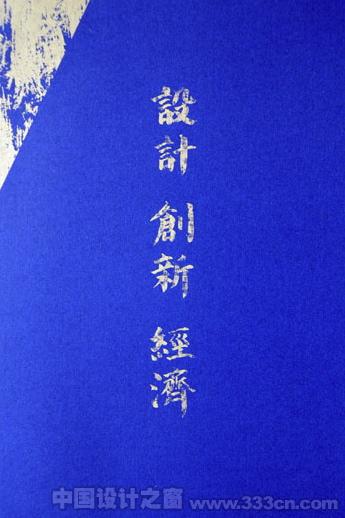 設計 創新 經濟
中国设计之窗 www.333cn.com